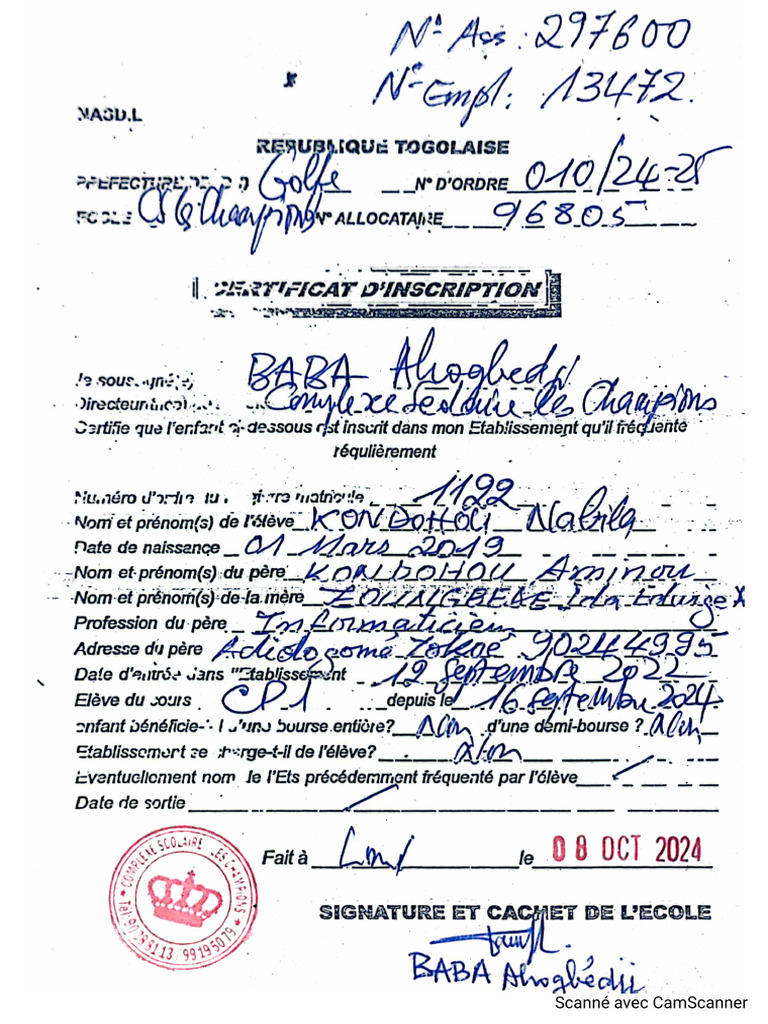 N° Ass : 297600
N° Empl : 13472.
NASD.L
REPUBLIQUE TOGOLAISE
PREFECTURE Golfe N° D'ORDRE 010/24-25
ECOLE CS les Champions N° ALLOCATAIRE 96805
CERTIFICAT D'INSCRIPTION
Je soussigné(e) BABA Ahogbedji
Directeur Complexe Scolaire les Champions
Certifie que l'enfant ci-dessous est inscrit dans mon Etablissement qu'il fréquente
régulièrement
Numéro d'ordre matricule 1122
Nom et prénom(s) de l'élève KONDOHOU Nabila
Date de naissance 01 Mars 2019
Nom et prénom(s) du père KONDOHOU Aminou
Nom et prénom(s) de la mère Ida Edwige
Profession du père Informaticien
Adresse du père Adidogomé 90244995
Date d'entrée dans l'Etablissement 12 Septembre 2022
Elève du cours CP1 depuis le 16 septembre 2024
enfant bénéficie-t-il d'une bourse entière? Non d'une demi-bourse ? Non
Etablissement se charge-t-il de l'élève? Non
Eventuellement nom de l'Ets précédemment fréquenté par l'élève
Date de sortie
Fait à Lomé le 08 OCT 2024
COMPLEXE SCOLAIRE LES CHAMPIONS
99195079
SIGNATURE ET CACHET DE L'ECOLE
BABA Ahogbédji
Scanné avec CamScanner